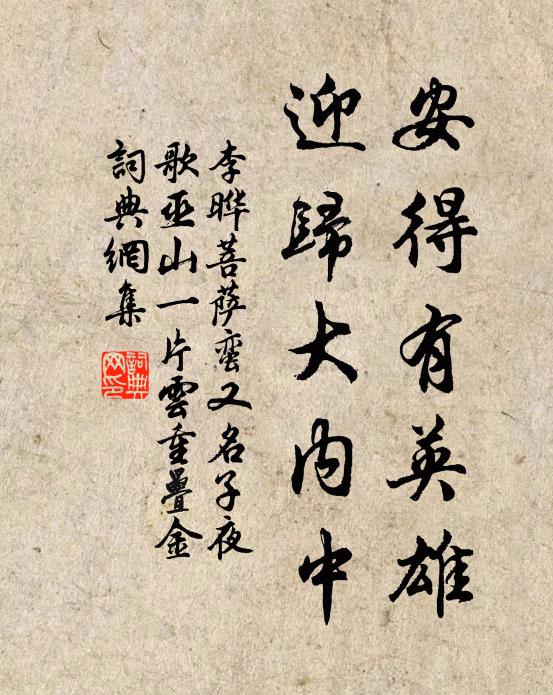 安得有英雄
迎歸大内中
李晔菩萨蛮又名子夜
歌巫山一片雲重疊金
詞典網集
詞典網印